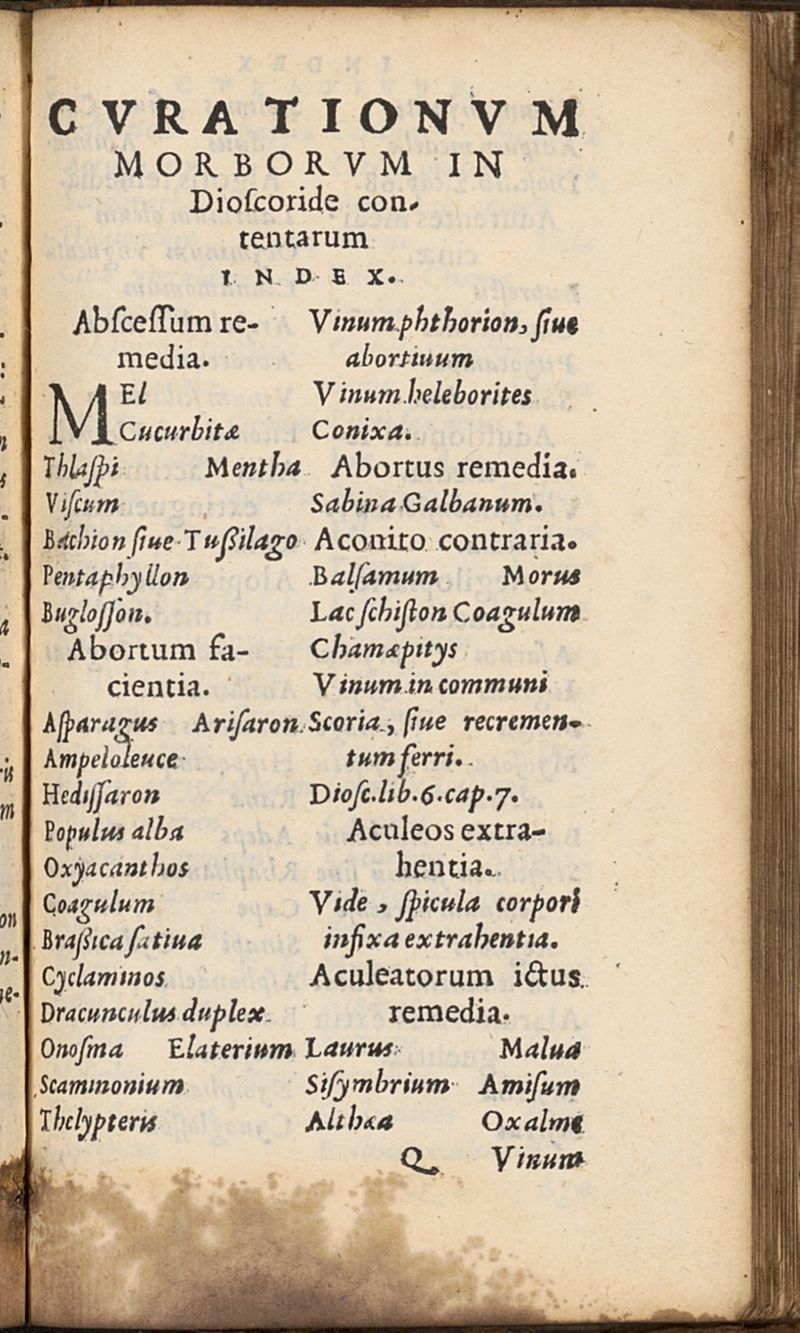 CVRATIONVM
MORBORVM IN
Dioſcoride con-
tentarum
INDEX.
Abſceſſum re-
media.
MEl
Cucurbitæ
Thlaſpi Mentha
Viſcum
Bachion ſiue Tußilago
Pentaphyllon
Bugloſſon.
Abortum fa-
cientia.
Aſparagus Ariſaron
Ampeloleuce
Hediſſaron
Populus alba
Oxyacanthos
Coagulum
Braßica ſatiua
Cyclaminos
Dracunculus duplex
Onoſma Elaterium
Scammonium
Thelypteris
Vinum phthorion, ſiue
abortiuum
Vinum heleborites
Conixa.
Abortus remedia.
Sabina Galbanum.
Aconito contraria.
Balſamum Morus
Lac ſchiſton Coagulum
Chamæpitys
Vinum in communi
Scoria, ſiue recremen-
tum ferri.
Dioſc.lib.6.cap.7.
Aculeos extra-
hentia.
Vide, ſpicula corpori
infixa extrahentia.
Aculeatorum ictus
remedia.
Laurus Malua
Siſymbrium Amiſum
Althæa Oxalme
Q Vinum